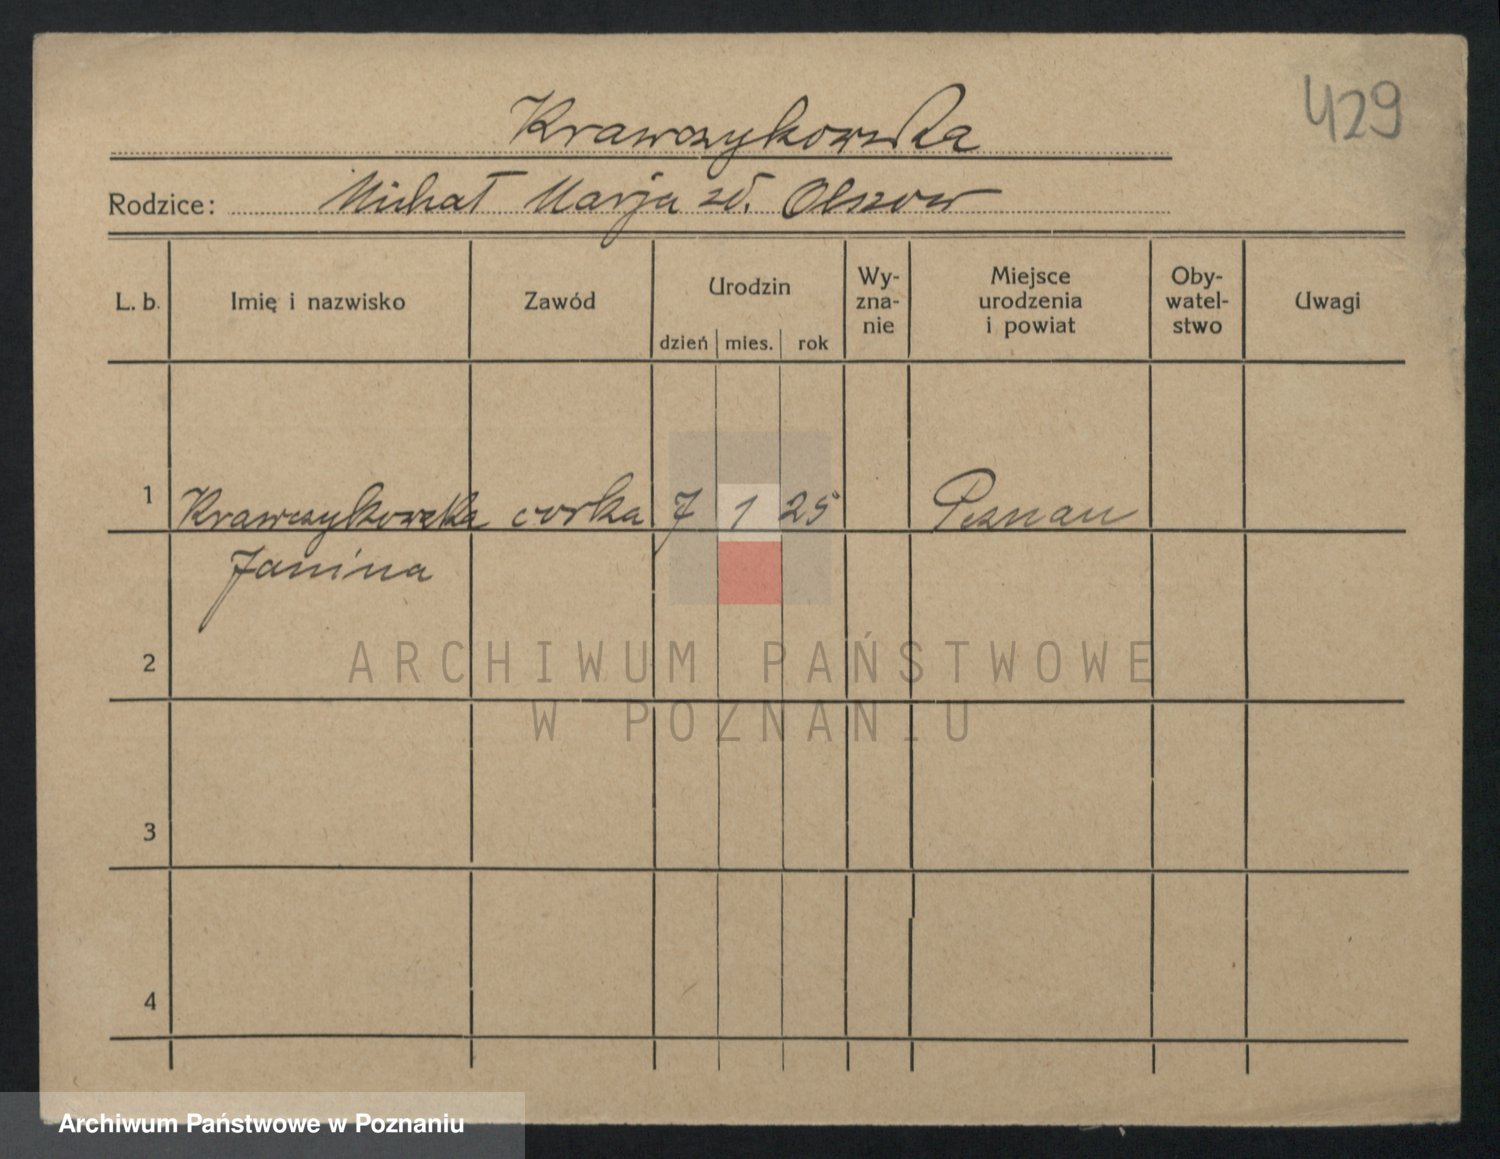 429
Krawczykowska
Rodzice: Michał Marja zd. Olszow
L. b. Imię i nazwisko Zawód Urodzin dzień mies. rok Wy-zna-nie Miejsce urodzenia i powiat Oby-watel-stwo Uwagi
1 Krawczykowska corka 7 1 25 Poznan
Janina
2
3
4
ARCHIWUM PAŃSTWOWE
W POZNANIU
Archiwum Państwowe w Poznaniu